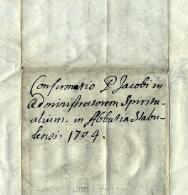 Confirmatio P Jacobi in
Administratorem Spiritu-
alium in Abbatia Stabu-
lensi. 1704.